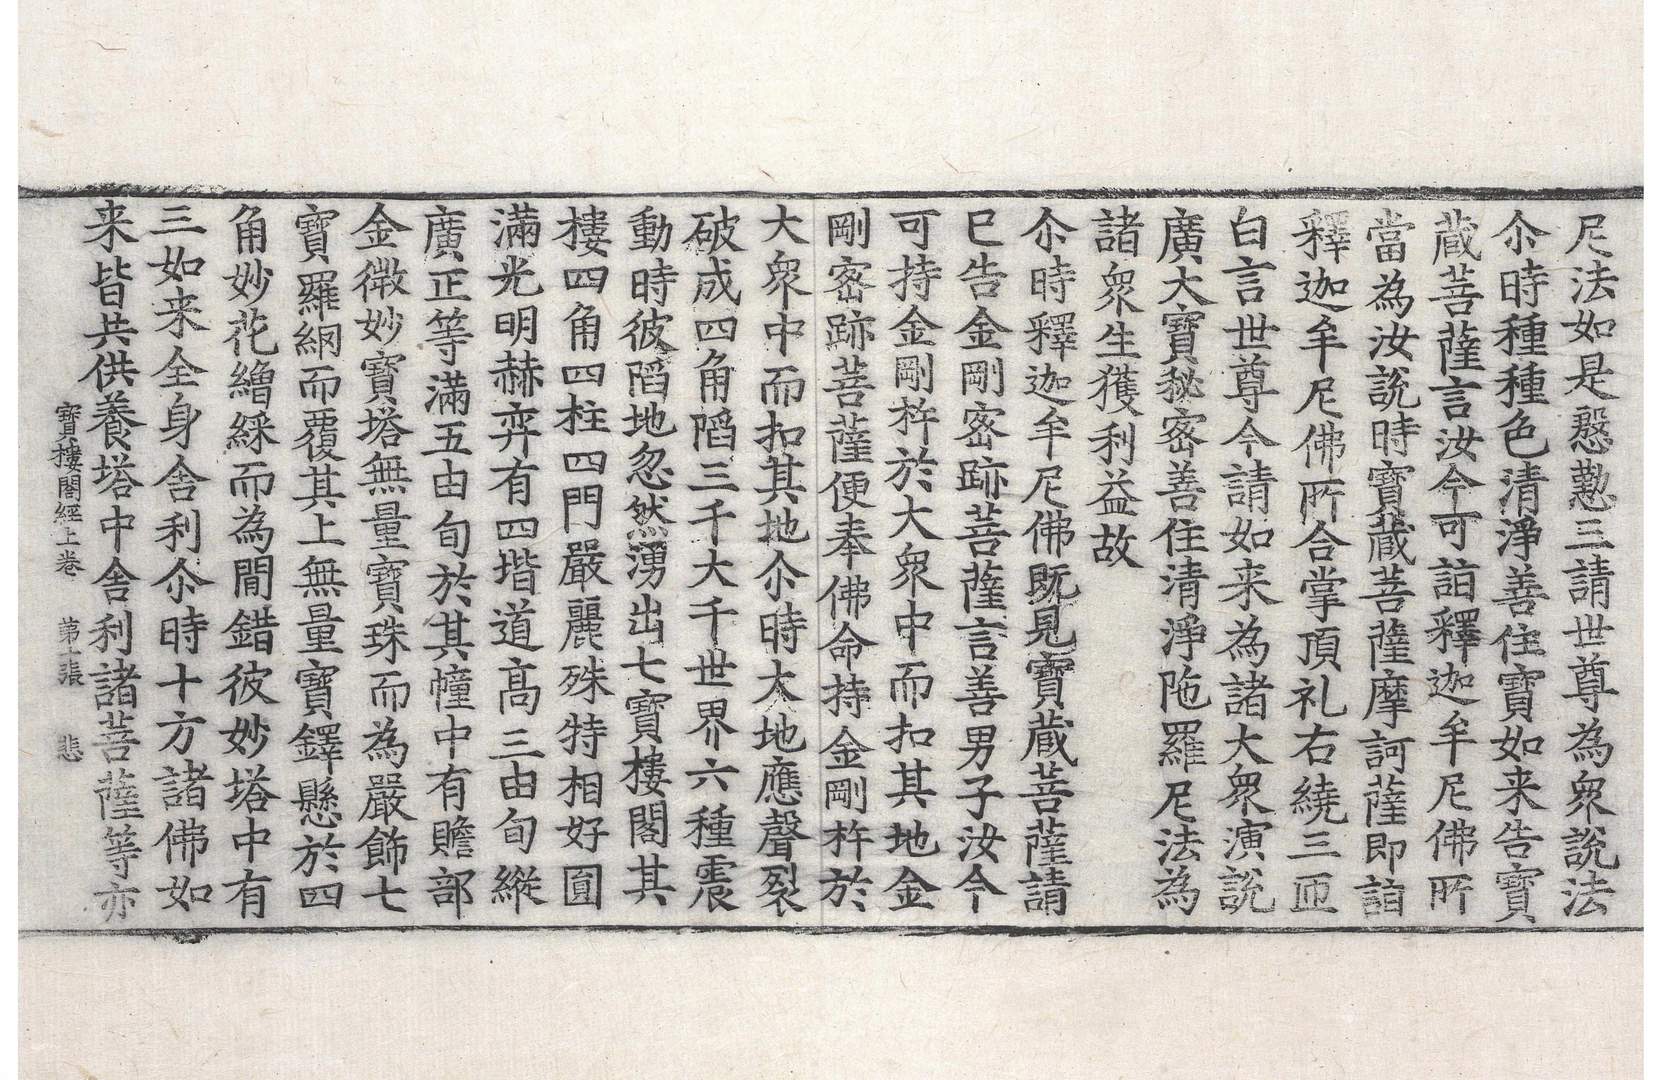 尼法如是慇懃三請世尊為衆說法
尒時種種色清淨善住寶如来告寶
蔵菩薩言汝今可詣釋迦牟尼佛所
當為汝說時寶蔵菩薩摩訶薩即詣
釋迦牟尼佛所合掌頂礼右繞三匝
白言世尊今請如来為諸大衆演說
廣大寶秘密善住清淨陁羅尼法為
諸衆生獲利益故
尒時釋迦牟尼佛既見寶蔵菩薩請
巳告金剛密跡菩薩言善男子汝今
可持金剛杵於大衆中而扣其地金
剛密跡菩薩便奉佛命持金剛杵於
大衆中而扣其地尒時大地應聲裂
破成四角陷三千大千世界六種震
動時彼陷地忽然湧出七寶樓閣其
樓四角四柱四門嚴麗殊特相好圓
滿光明赫弈有四堦道高三由旬縱
廣正等滿五由旬於其幢中有贍部
金微妙寶塔無量寶珠而為嚴飾七
寶羅網而覆其上無量寶鐸懸於四
角妙花繒綵而為閒錯彼妙塔中有
三如来全身舎利尒時十方諸佛如
来皆共供養塔中舎利諸菩薩等亦
寶樓閣經上卷 第十張 悲